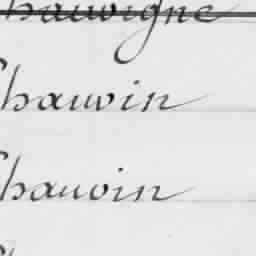 Chauvigné
Chauvin
Chauvin